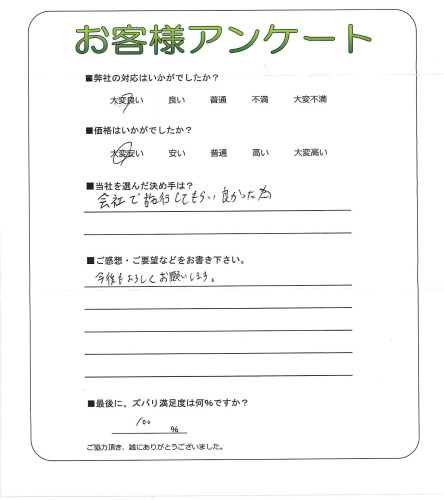 お客様アンケート
■弊社の対応はいかがでしたか?
大変良い 良い 普通 不満 大変不満
■価格はいかがでしたか?
大変安い 安い 普通 高い 大変高い
■当社を選んだ決め手は?
会社で してもらい良かった為
■ご感想・ご要望などをお書き下さい。
今後もよろしくお願いします。
■最後に、ズバリ満足度は何%ですか?
100 %
ご協力頂き、誠にありがとうございました。